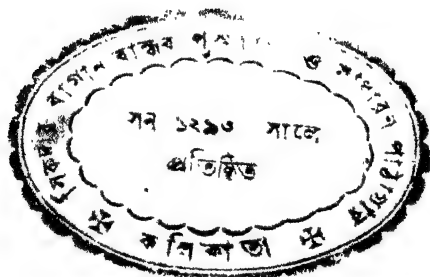 বাগান বান্ধব
ও সাধারণ পাঠাগার
সন ১২৯৩ সালে
প্রতিষ্ঠিত
কলিকাতা